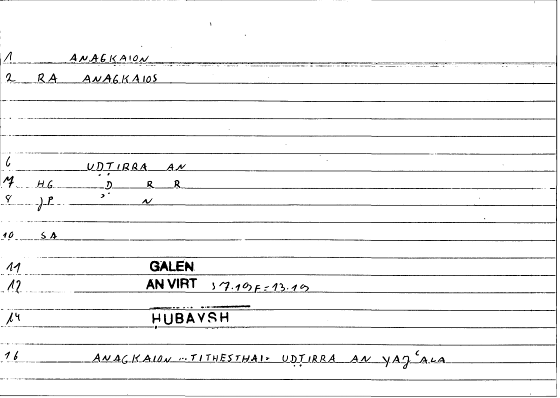 1 ANAGKAION
2 RA ANAGKAIOS
6 UḌTIRRA AN
7 HG Ḍ R R
8 JP N
10 SA
11 GALEN
12 AN VIRT 57.19F=13.19
14 ḤUBAYSH
16 ANAGKAION...TITHESTHAI= UḌTIRRA AN YAJ'ALA